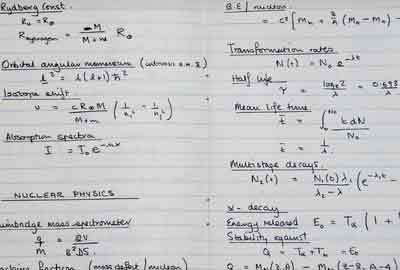 Rydberg Const.
R₀ = R∞
R_hydrogen = M / (M + m) R∞
Orbital angular momentum
l² = l(l+1)ħ²
Isotope shift.
ν = cR∞M / (M+m) (1/n₁² - 1/n₂²)
Absorption spectra
I = I₀ e
NUCLEAR PHYSICS
mass spectrometer
q/m = 2V / B²
fraction (mass defect / nucleon)
B.E / nucleon
= c² [Mₙ + Z/A (M_H - Mₙ) -
Transformation rates
N(t) = N₀ e^-λt
Half life
τ = logₑ2 / λ = 0.693
Mean life time
t̄ = ∫ t dN / N₀
t̄ = 1/λ
Multistage decays.
N₂(t) = N₁(0) λ₁ / (λ₂ - λ) (e^-λ₁t -
α - decay
Energy released E₀ = Tα (1 +
Stability against
Q = Tα + T = E₀
Q = M (Z, A) - M (Z-2, A-4)